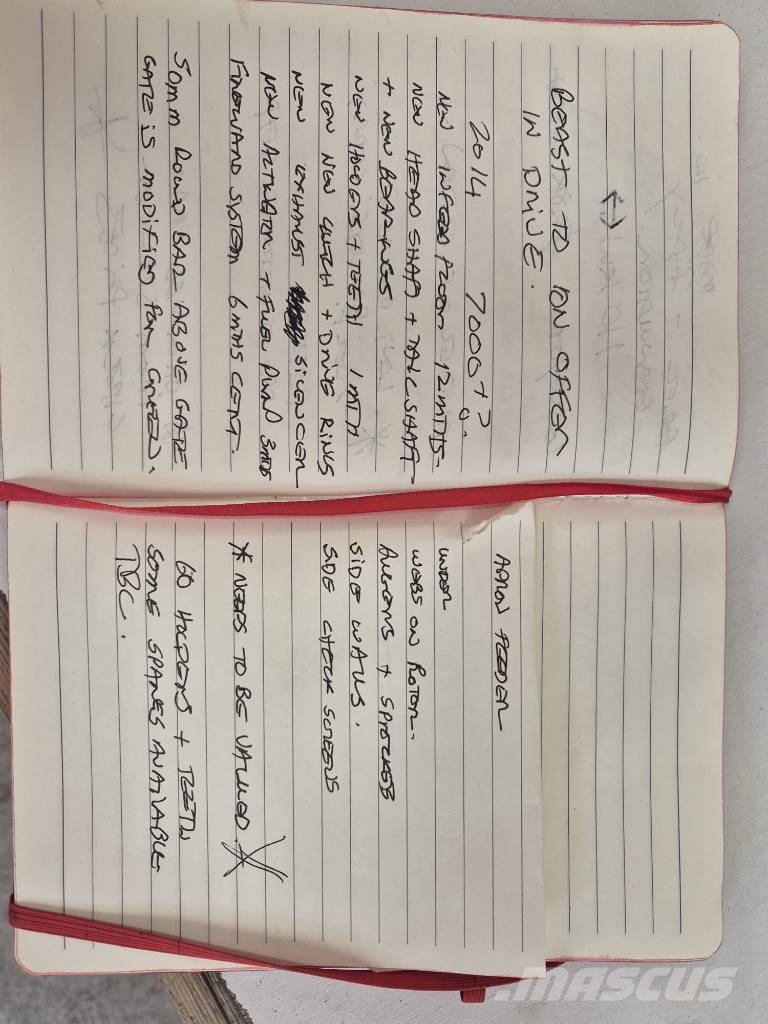 BEAST TO ION OFFER
IN DRIVE.
2014 7000+?
NEW INFEED FLOOR 12 MTHS-
NEW HEAD SHAFT + TAIL SHAFT
+ NEW BEARINGS
NEW HOLDERS + TEETH 1 MTH
NEW NEW CLUTCH + DRIVE RINGS
NEW EXHAUST SILENCER
NEW ACTIVATOR + FUEL PUMP 3MTHS
FIREWARD SYSTEM 6 MTHS CERT.
50MM ROUND BAR ABOVE GATE
GATE IS MODIFIED FOR GREEN.
APRON FEEDER
UNDER
WEBS ON ROTOR.
AUGERS + SPROCKETS
SIDE WALLS.
SIDE CHECK SCREENS
* NEEDS TO BE VALUED *
60 HOLDERS + TEETH
SOME SPARES AVAILABLE.
TBC.
.mascus